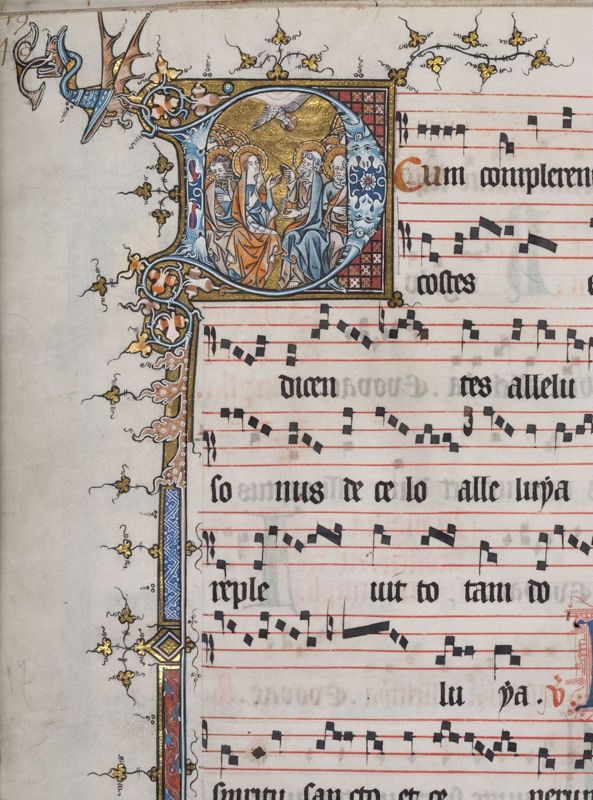 Dum complerent
costes e
dicen tes allelu
so nus de ce lo alle luya
reple uit to tam do
lu ya. V
spiritu sancto et ce perunt